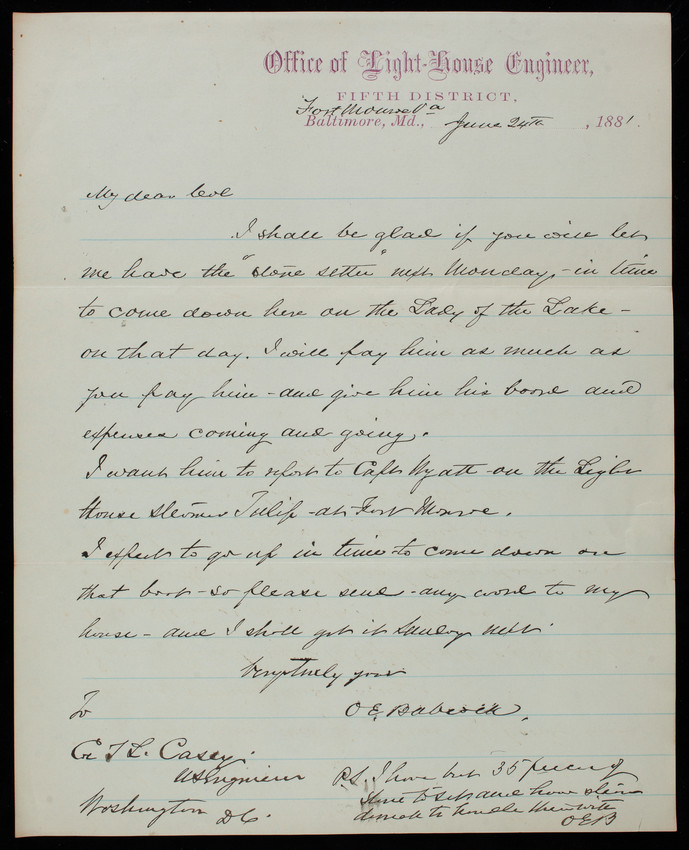 Office of Light-House Engineer,
FIFTH DISTRICT,
Fort Monroe Va
Baltimore, Md., June 24th, 1881.
My dear Col
I shall be glad if you will let
me have the "stone setter" next Monday - in time
to come down here on the Lady of the Lake -
on that day. I will pay him as much as
you pay him - and give him his board and
expenses coming and going.
I want him to report to Capt Wyatt - on the Light
House steamer Tulip - at Fort Monroe.
I expect to go up in time to come down on
that boat - so please send - any word to my
house - and I shall get it Sunday next.
Very truly yours
To O E Babcock,
G T L. Casey.
US Engineer
Washington DC.
P.S. I have but 35 pieces of
stone to set and have steam
derrick to handle them with
OEB